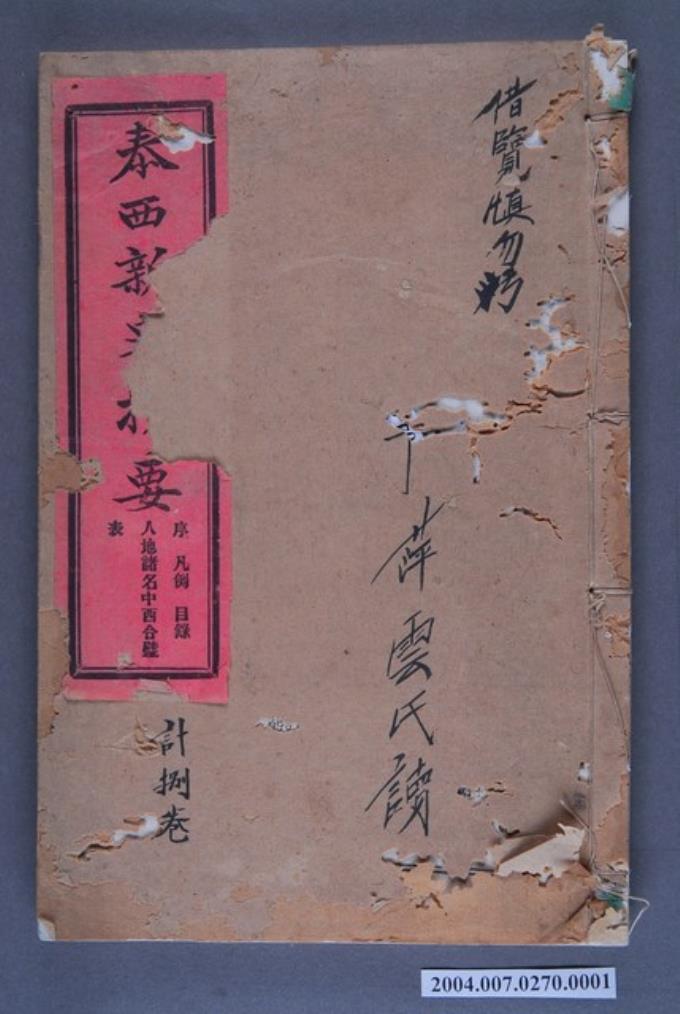 借覽慎勿污
萍雲氏讀
泰西新史攬要
序 凡例 目錄
人地諸名中西合璧
表
計捌卷
2004.007.0270.0001